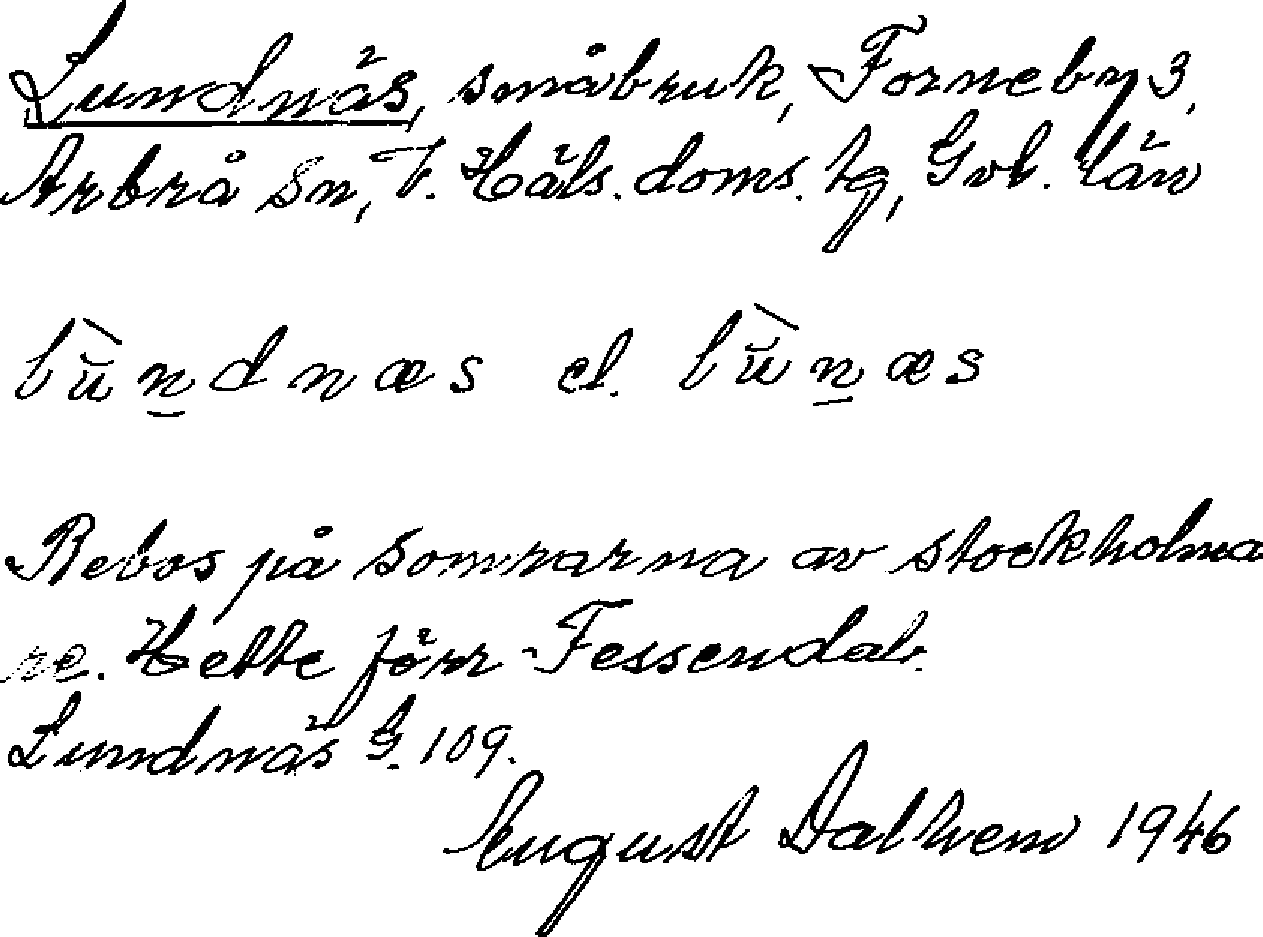 Lundnäs, småbruk, Forneby 3,
Arbrå sn, V. Häls. doms. lg, Gvb. län
lùndnæs el. lùnæs
Bebos på somrarna av stockholma
re. Hette förr Fessendal.
Lundnäs G. 109.
August Dalhem 1946